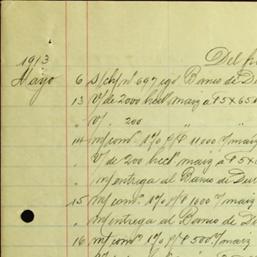 1913 Del fr
Mayo 6 S/ch/ nº 697 cgo Banco de D
13 V/ de 2000 hect. maiz a $5.65
" V/ " 200 "
14 m/com. 1% s/$ 11000 "/ maiz
" V/ de 200 hect. maiz a $5
" m/entrega al Banco de Dur
15 m/com. 1% s/$ 1000 "/ maiz
" m/entrega al Banco de D
16 m/com. 1% s/$ 500 "/ maiz